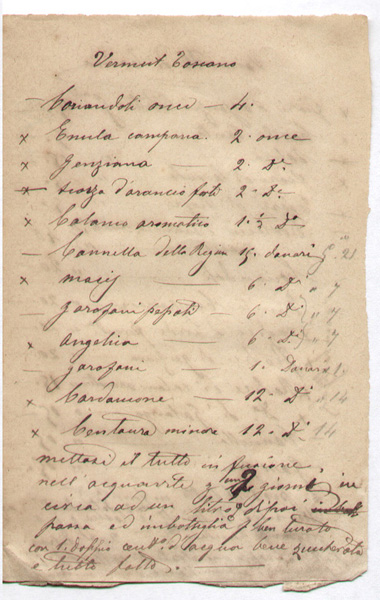 Vermut Toscano
– Coriandoli once – 4.
x Enula campana. 2. once
x Genziana — 2. Di
x scorza d'arancio forti 2. Di
x Calamo aromatico 1. ½ Di
– Cannella della Regina 15. danari G. 21
x macis — 6. Di " 7
garofani pepati – 6. Di " 7
x angelica — 6. Di " 7
– garofani — 1. Danari 1.
x Cardamone — 12. Di " 14
x Centaura minore 12. Di 14
mettasi il tutto in fusione,
nell'acquavite giorni in
circa ad un litro, di poi
passa ed imbottiglia ben turato
con d'acqua bene zuccherata
e tutto fatto.